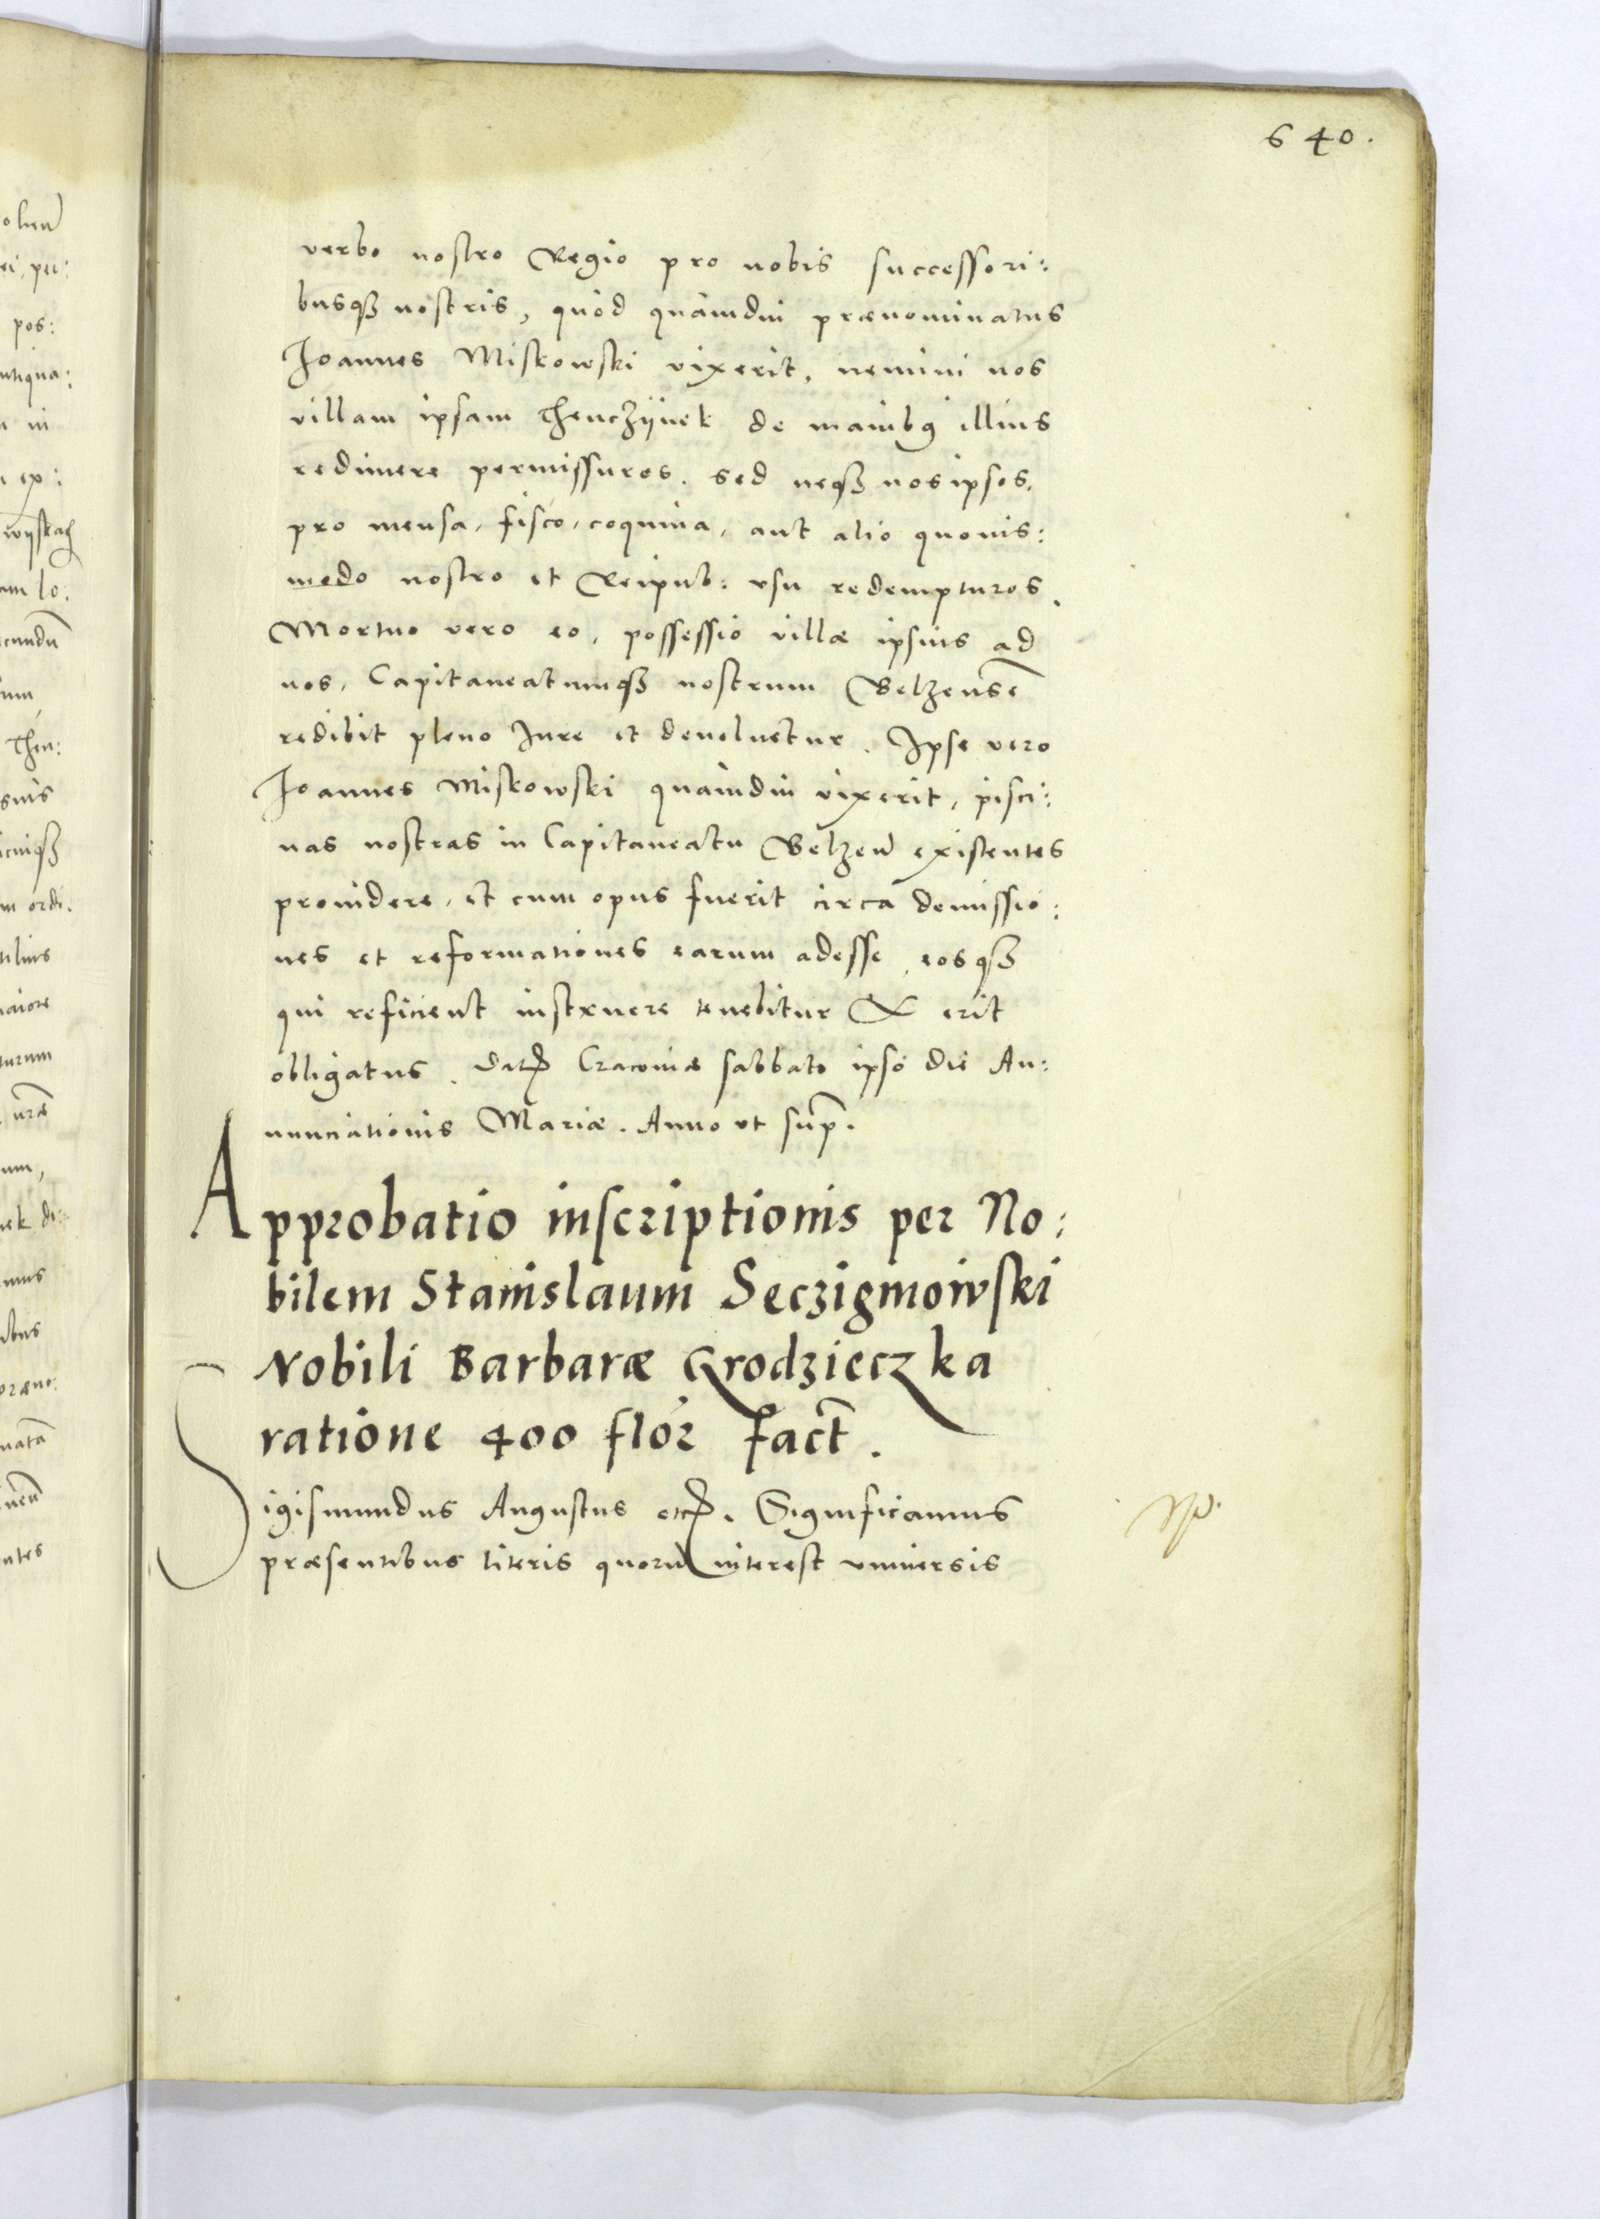 640.
verbo nostro Regio pro nobis successori:
busqꝫ nostris, quòd quàmdiu prænominatus
Joannes Miskowski vixerit, nemini nos
villam ipsam Thenczijnek de manibꝰ illius
redimere permissuros. sed neqꝫ nos ipsos,
pro mensa, fisco, coquina, aut alio quouis:
modo nostro et Reipub: vsu redempturos.
Mortuo vero eo, possessio villæ ipsius ad
nos, Capitaneatumqꝫ nostrum Belzensē
redibit pleno Jure et deuoluetur. Ipse vero
Joannes Miskowski quàmdiu vixerit, pisci:
nas nostras in Capitaneatu Belzeñ existentes
prouidere, et cum opus fuerit circa demissio:
nes et reformationes earum adesse, eosqꝫ
qui reficient instruere tenebitur & erit
obligatus. Datꝭ Cracouiæ sabbato ipso die An:
nunciationis Mariæ. Anno vt sup̄.
Approbatio inscriptionis per No:
bilem Stanislaum Seczigmowski
Nobili Barbaræ Grodzieczka
ratione 400 flor fact̄.
Sigismundus Augustus etcꝭ. Significamus
præsentibus literis quorū interest vniuersis